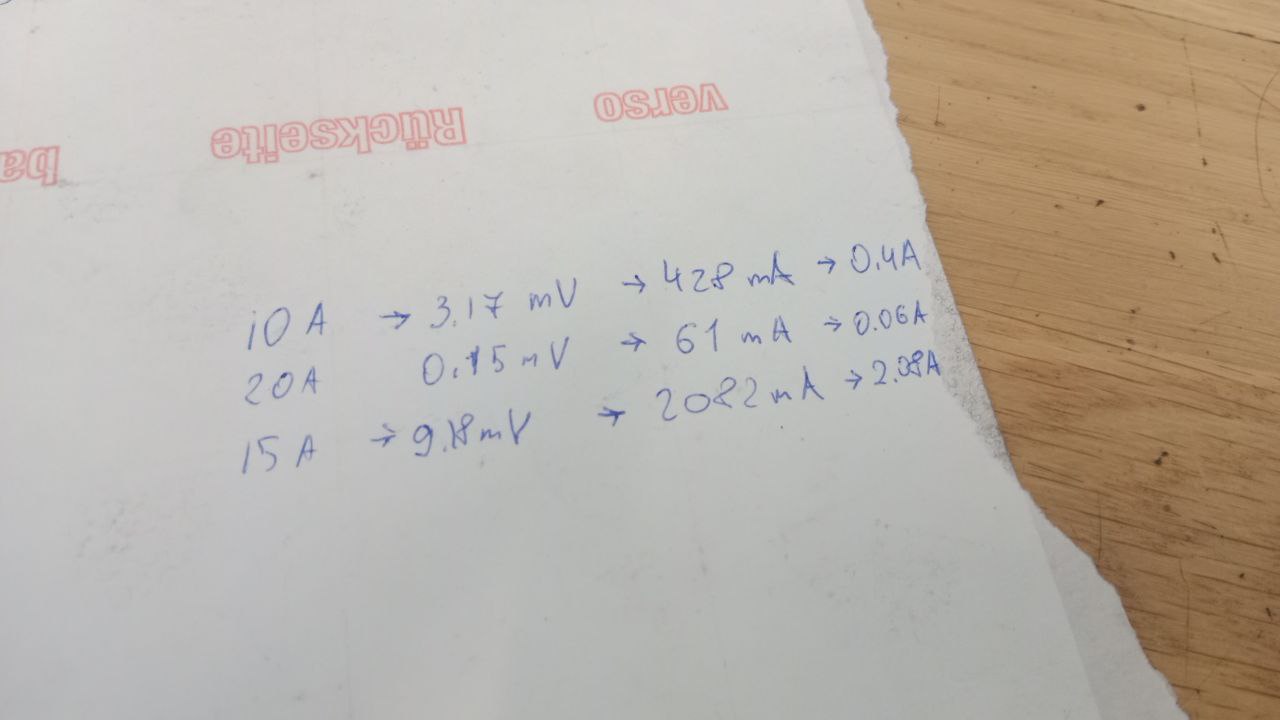 verso
Rückseite
ba
10 A → 3.17 mV → 428 mA → 0.4A
20A 0.15 mV → 61 mA → 0.06A
15 A → 9.18mV → 2082 mA → 2.08A